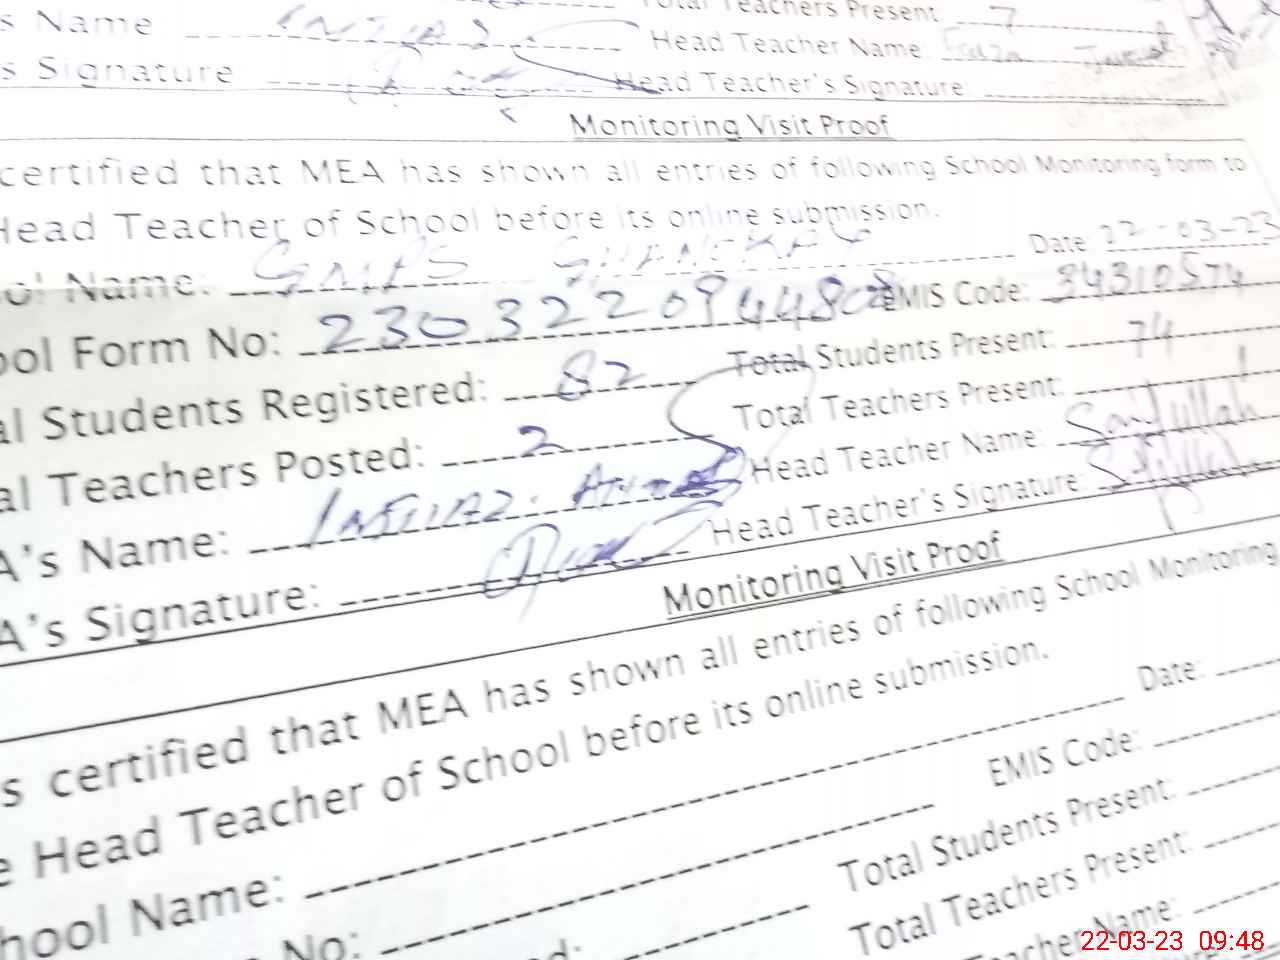 s Name Total Teachers Present 7
s Signature Head Teacher Name:
Head Teacher's Signature:
Monitoring Visit Proof
certified that MEA has shown all entries of following School Monitoring form to
Head Teacher of School before its online submission.
ool Name: GMPS Date: 22-03-23
ool Form No: EMIS Code: 34310574
al Students Registered: 82 Total Students Present: 74
al Teachers Posted: 2 Total Teachers Present:
A's Name: Head Teacher Name: Saifullah
A's Signature: Head Teacher's Signature: Saifullah
Monitoring Visit Proof
s certified that MEA has shown all entries of following School Monitoring
e Head Teacher of School before its online submission.
hool Name: Date:
No: EMIS Code:
ed: Total Students Present:
Total Teachers Present:
eacher Name:
22-03-23 09:48